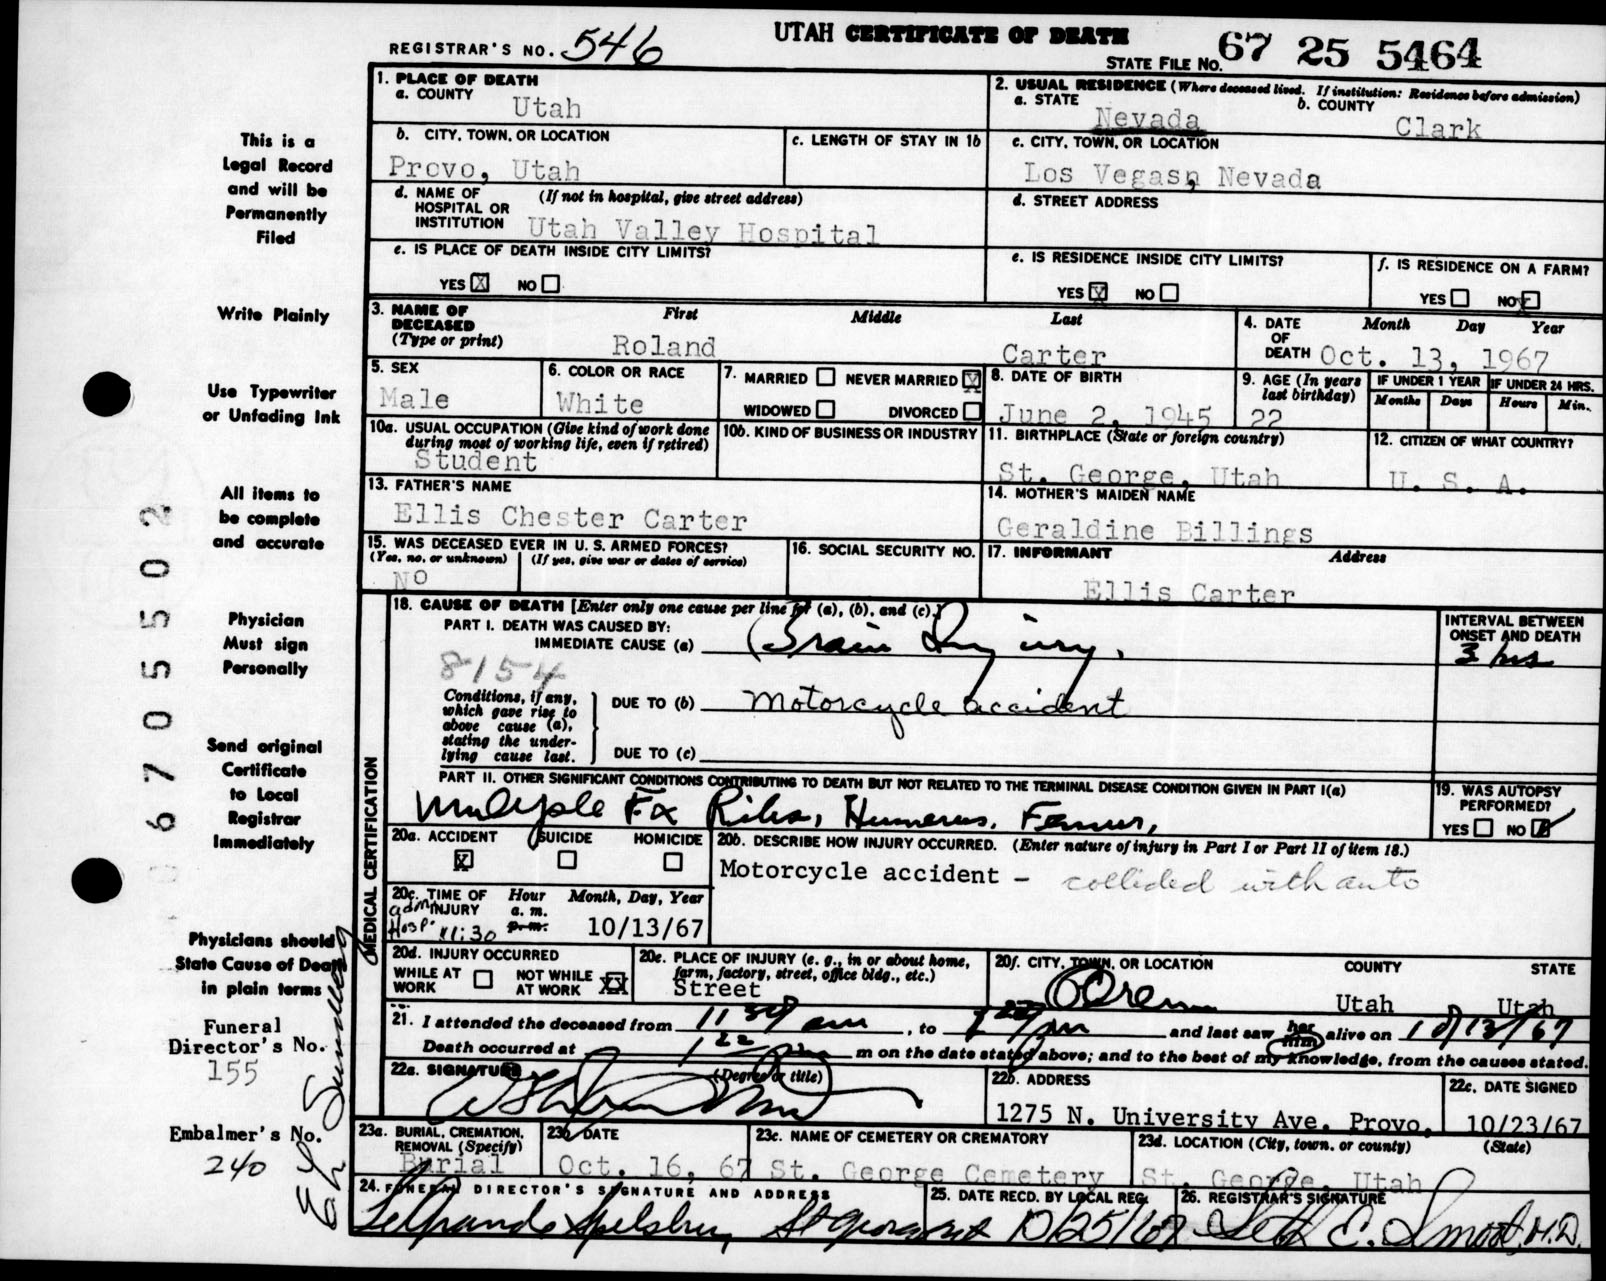 UTAH CERTIFICATE OF DEATH
REGISTRAR'S NO. 546
STATE FILE NO. 67 25 5464
1. PLACE OF DEATH
a. COUNTY
Utah
2. USUAL RESIDENCE (Where deceased lived. If institution: Residence before admission)
a. STATE
Nevada
b. COUNTY
Clark
b. CITY, TOWN, OR LOCATION
Provo, Utah
c. LENGTH OF STAY IN 1b
c. CITY, TOWN, OR LOCATION
Los Vegasn, Nevada
d. NAME OF HOSPITAL OR INSTITUTION
(If not in hospital, give street address)
Utah Valley Hospital
d. STREET ADDRESS
e. IS PLACE OF DEATH INSIDE CITY LIMITS?
YES X NO
e. IS RESIDENCE INSIDE CITY LIMITS?
YES X NO
f. IS RESIDENCE ON A FARM?
YES NO X
3. NAME OF DECEASED (Type or print)
First Middle Last
Roland Carter
4. DATE OF DEATH
Month Day Year
Oct. 13, 1967
5. SEX
Male
6. COLOR OR RACE
White
7. MARRIED NEVER MARRIED X
WIDOWED DIVORCED
8. DATE OF BIRTH
June 2, 1945
9. AGE (In years last birthday)
22
IF UNDER 1 YEAR
Months Days
IF UNDER 24 HRS.
Hours Min.
10a. USUAL OCCUPATION (Give kind of work done during most of working life, even if retired)
Student
10b. KIND OF BUSINESS OR INDUSTRY
11. BIRTHPLACE (State or foreign country)
St. George, Utah
12. CITIZEN OF WHAT COUNTRY?
U. S. A.
13. FATHER'S NAME
Ellis Chester Carter
14. MOTHER'S MAIDEN NAME
Geraldine Billings
15. WAS DECEASED EVER IN U. S. ARMED FORCES?
(Yes, no, or unknown) (If yes, give war or dates of service)
No
16. SOCIAL SECURITY NO.
17. INFORMANT Address
Ellis Carter
MEDICAL CERTIFICATION
18. CAUSE OF DEATH [Enter only one cause per line for (a), (b), and (c).]
PART I. DEATH WAS CAUSED BY:
IMMEDIATE CAUSE (a) Brain Injury.
INTERVAL BETWEEN ONSET AND DEATH
3 hrs
8154
Conditions, if any, which gave rise to above cause (a), stating the underlying cause last.
DUE TO (b) Motorcycle accident
DUE TO (c)
PART II. OTHER SIGNIFICANT CONDITIONS CONTRIBUTING TO DEATH BUT NOT RELATED TO THE TERMINAL DISEASE CONDITION GIVEN IN PART I(a)
Multiple Fx Ribs, Humerus, Femur,
19. WAS AUTOPSY PERFORMED?
YES NO X
20a. ACCIDENT SUICIDE HOMICIDE
X
20b. DESCRIBE HOW INJURY OCCURRED. (Enter nature of injury in Part I or Part II of item 18.)
Motorcycle accident - collided with auto
20c. TIME OF INJURY
Hour Month, Day, Year
a. m.
p. m.
adm Hosp. 11:30
10/13/67
20d. INJURY OCCURRED
WHILE AT WORK NOT WHILE AT WORK XX
20e. PLACE OF INJURY (e. g., in or about home, farm, factory, street, office bldg., etc.)
Street
20f. CITY, TOWN, OR LOCATION COUNTY STATE
Orem Utah Utah
21. I attended the deceased from 11 30 am, to 1 22 pm and last saw her him alive on 10/13/67
Death occurred at 1 22 pm m on the date stated above; and to the best of my knowledge, from the causes stated.
22a. SIGNATURE (Degree or title)
22b. ADDRESS
1275 N. University Ave. Provo,
22c. DATE SIGNED
10/23/67
23a. BURIAL, CREMATION, REMOVAL (Specify)
Burial
23b. DATE
Oct. 16, 67
23c. NAME OF CEMETERY OR CREMATORY
St. George Cemetery
23d. LOCATION (City, town, or county) (State)
St. George, Utah
24. FUNERAL DIRECTOR'S SIGNATURE AND ADDRESS
25. DATE RECD. BY LOCAL REG.
10/25/67
26. REGISTRAR'S SIGNATURE
Seth E. Smoot, M.D.
This is a
Legal Record
and will be
Permanently
Filed
Write Plainly
Use Typewriter
or Unfading Ink
All items to
be complete
and accurate
Physician
Must sign
Personally
Send original
Certificate
to Local
Registrar
Immediately
Physicians should
State Cause of Death
in plain terms
Funeral
Director's No.
155
Embalmer's No.
240
06705502